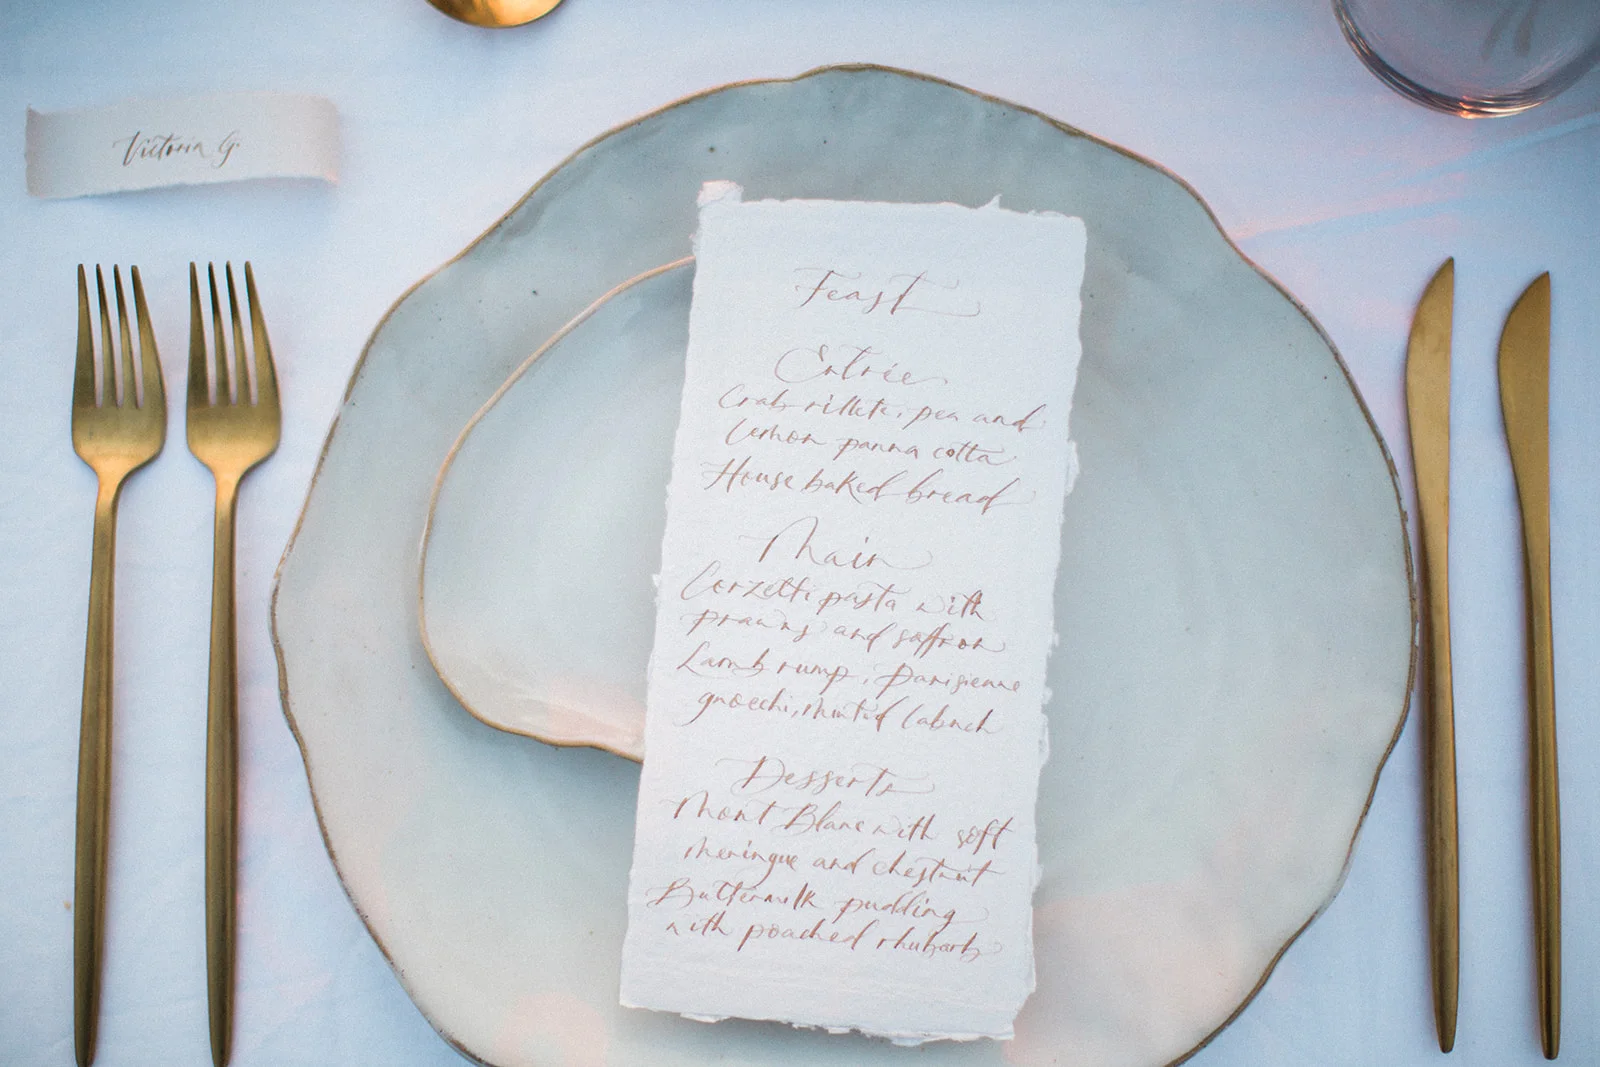 Victoria G.
Feast
Entrée
Crab rillette, pea and
lemon panna cotta
House baked bread
Main
Corzetti pasta with
prawns and saffron
Lamb rump, Parisienne
gnocchi, minted labneh
Desserts
Mont Blanc with soft
meringue and chestnut
Buttermilk pudding
with poached rhubarb